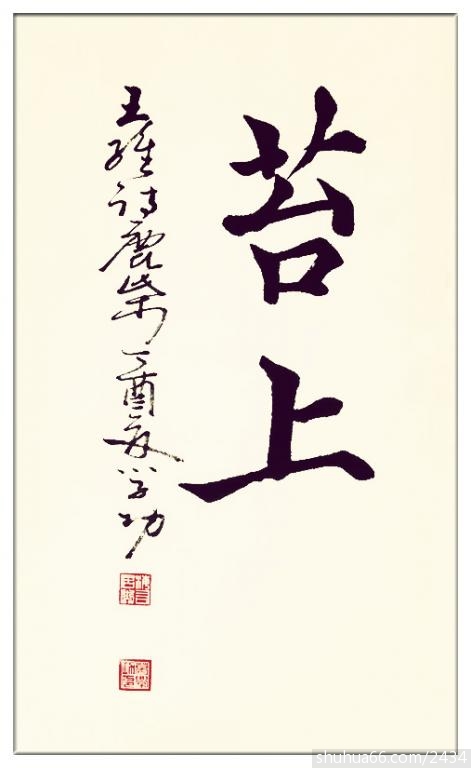 苔上
王维诗鹿柴丁酉夏学功
shuhua66.com/2434